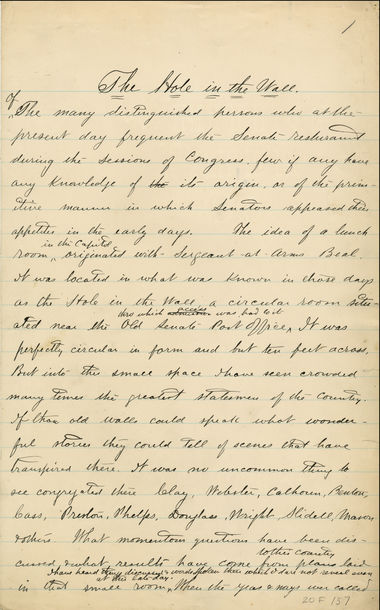 1
The Hole in the Wall.
Of
The many distinguished persons who at the
present day frequent the Senate restaurant
during the sessions of Congress, few if any have
any knowledge of the its origin, or of the prim-
itive manner in which Senators appeased their
appetites in the early days. The idea of a lunch
in the Capitol
room, originated with Sergeant at Arms Beal.
It was located in what was known in those days
as the Hole in the Wall, a circular room situ-
thro which access was had to it
ated near the Old Senate Post Office, It was
perfectly circular in form and but ten feet across,
But into this small space I have seen crowded
many times the greatest statesmen of the Country.
If those old walls could speak what wonder-
ful stories they could tell of scenes that have
transpired there. It was no uncommon thing to
see congregated there Clay, Webster, Calhoun, Benton,
Cass, Preston, Phelps, Douglass, Wright, Slidell, Mason
& others. What momentous questions have been dis-
to the country
cussed, & what results have come from plans laid
I have heard they discuss words spoken there which I dare not reveal even
at this late day
in that small room, When the yeas & nays were called
20F 157